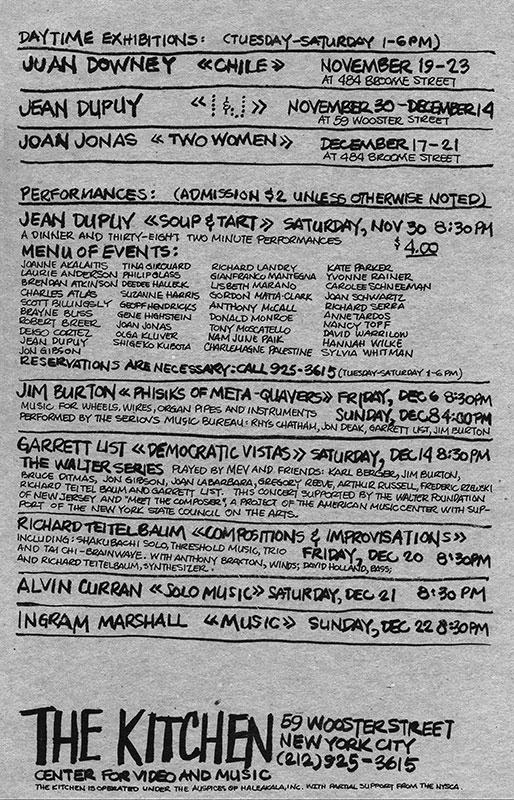 DAYTIME EXHIBITIONS: (TUESDAY-SATURDAY 1-6PM)
JUAN DOWNEY «CHILE» NOVEMBER 19-23
AT 484 BROOME STREET
JEAN DUPUY «&» NOVEMBER 30-DECEMBER 14
AT 59 WOOSTER STREET
JOAN JONAS «TWO WOMEN» DECEMBER 17-21
AT 484 BROOME STREET
PERFORMANCES: (ADMISSION $2 UNLESS OTHERWISE NOTED)
JEAN DUPUY «SOUP & TART» SATURDAY, NOV 30 8:30PM
A DINNER AND THIRTY-EIGHT TWO MINUTE PERFORMANCES $4.00
MENU OF EVENTS:
JOANNE AKALAITIS TINA GIROUARD RICHARD LANDRY KATE PARKER
LAURIE ANDERSON PHILIP GLASS GIANFRANCO MANTEGNA YVONNE RAINER
BRENDAN ATKINSON DEEDEE HALLECK LISBETH MARANO CAROLEE SCHNEEMAN
CHARLES ATLAS SUZANNE HARRIS GORDON MATTA-CLARK JOAN SCHWARTZ
SCOTT BILLINGSLY GEOFF HENDRICKS ANTHONY McCALL RICHARD SERRA
BRAYNE BLISS GENE HIGHSTEIN DONALD MONROE ANNE TARDOS
ROBERT BREER JOAN JONAS TONY MOSCATELLO NANCY TOPF
DEIGO CORTEZ OLGA KLUVER NAM JUNE PAIK DAVID WARRILOW
JEAN DUPUY SHIGEKO KUBOTA CHARLEMAGNE PALESTINE HANNAH WILKE
JON GIBSON SYLVIA WHITMAN
RESERVATIONS ARE NECESSARY: CALL 925-3615 (TUESDAY-SATURDAY 1-6 PM)
JIM BURTON «PHISIKS OF META-QUAVERS» FRIDAY, DEC 6 8:30PM
MUSIC FOR WHEELS, WIRES, ORGAN PIPES AND INSTRUMENTS SUNDAY, DEC 8 4:00PM
PERFORMED BY THE SERIOUS MUSIC BUREAU: RHYS CHATHAM, JON DEAK, GARRETT LIST, JIM BURTON
GARRETT LIST «DEMOCRATIC VISTAS» SATURDAY, DEC 14 8:30PM
THE WALTER SERIES PLAYED BY MEV AND FRIENDS: KARL BERGER, JIM BURTON,
BRUCE DITMAS, JON GIBSON, JOAN LABARBARA, GREGORY REEVE, ARTHUR RUSSELL, FREDERIC RZEWSKI
RICHARD TEITELBAUM AND GARRETT LIST. THIS CONCERT SUPPORTED BY THE WALTER FOUNDATION
OF NEW JERSEY AND "MEET THE COMPOSER", A PROJECT OF THE AMERICAN MUSIC CENTER WITH SUP-
PORT OF THE NEW YORK STATE COUNCIL ON THE ARTS.
RICHARD TEITELBAUM «COMPOSITIONS & IMPROVISATIONS»
INCLUDING: SHAKUBACHI SOLO, THRESHOLD MUSIC, TRIO FRIDAY, DEC 20 8:30PM
AND TAI CHI-BRAINWAVE. WITH ANTHONY BRAXTON, WINDS; DAVID HOLLAND, BASS;
AND RICHARD TEITELBAUM, SYNTHESIZER.
ALVIN CURRAN «SOLO MUSIC» SATURDAY, DEC 21 8:30 PM
INGRAM MARSHALL «MUSIC» SUNDAY, DEC 22 8:30PM
THE KITCHEN
59 WOOSTER STREET
NEW YORK CITY
(212) 925-3615
CENTER FOR VIDEO AND MUSIC
THE KITCHEN IS OPERATED UNDER THE AUSPICES OF HALEAKALA, INC. WITH PARTIAL SUPPORT FROM THE NYSCA.